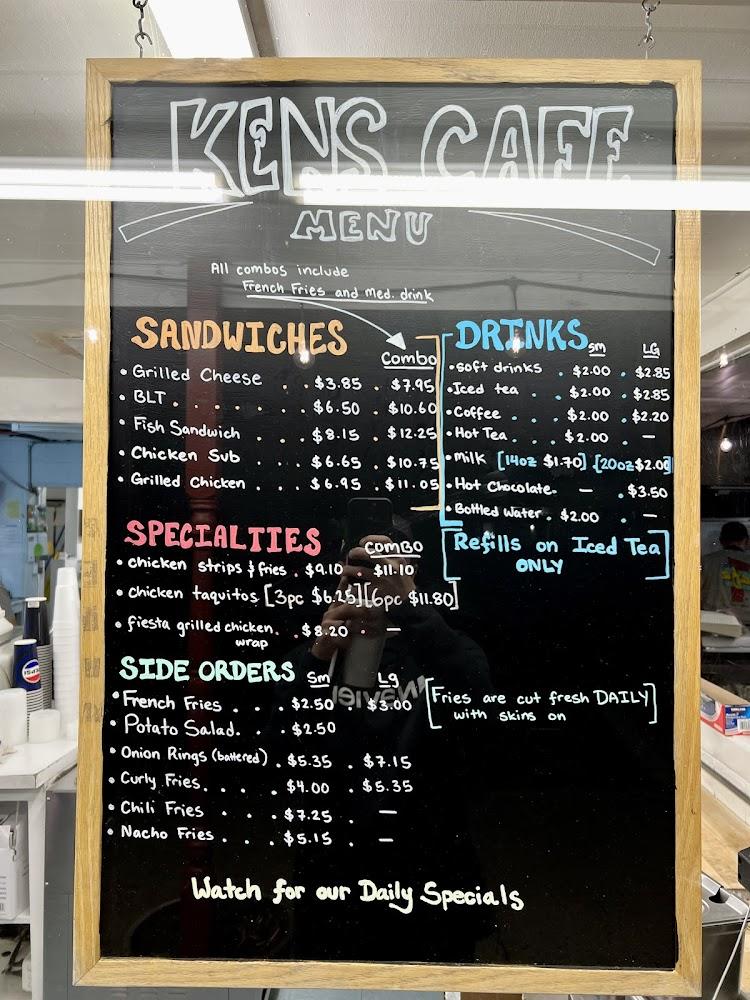 KENS CAFE
MENU
All combos include
French Fries and Med. drink
SANDWICHES
Combo
• Grilled Cheese . . $3.85 . $7.95
• BLT . . . . . $6.50 . $10.60
• Fish Sandwich . . . $8.15 . $12.25
• Chicken Sub . . . $6.65 . $10.75
• Grilled Chicken . . . $6.95 . $11.05
DRINKS sm LG
• soft drinks . $2.00 . $2.85
• Iced tea . . $2.00 . $2.85
• Coffee . . $2.00 . $2.20
• Hot Tea . . $2.00 . —
• Milk [14oz $1.70] [20oz $2.00]
• Hot Chocolate. — . $3.50
• Bottled Water . $2.00 . —
[Refills on Iced Tea
ONLY]
SPECIALTIES
COMBO
• chicken strips & fries . $9.10 . $11.10
• chicken taquitos [3pc $6.25] [6pc $11.80]
• fiesta grilled chicken . . $8.20 . —
wrap
SIDE ORDERS Sm Lg
• French Fries . . . $2.50 . $3.00
• Potato Salad. . . $2.50
• Onion Rings (battered) . $5.35 . $7.15
• Curly Fries. . . . $4.00 . $5.35
• Chili Fries . . . $7.25 . —
• Nacho Fries . . . $5.15 . —
[Fries are cut fresh DAILY
with skins on]
Watch for our Daily Specials
PEPSI